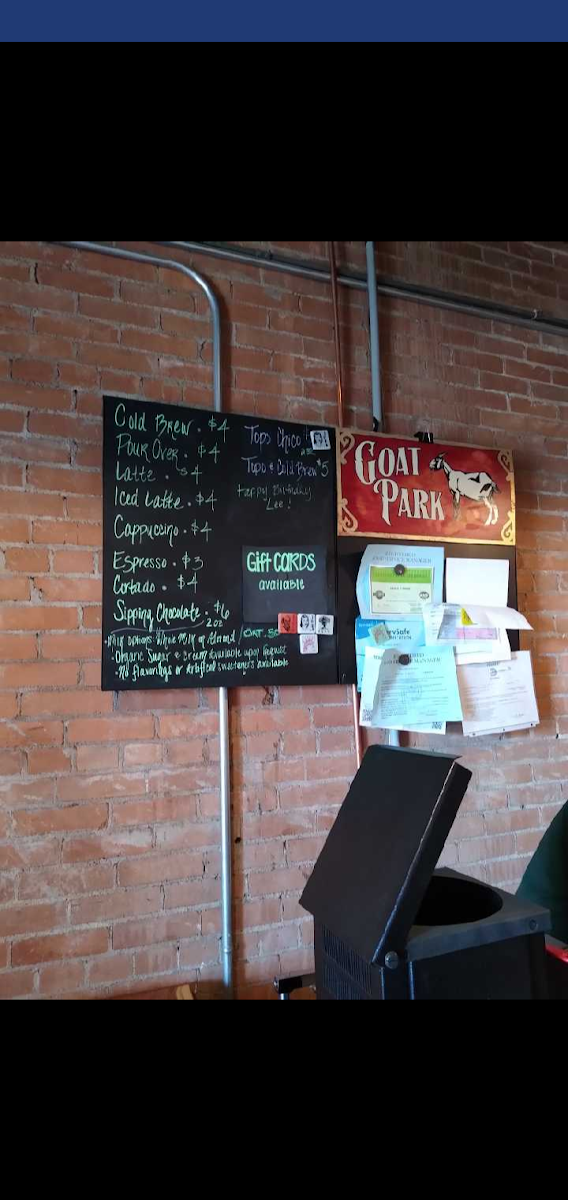 Cold Brew . $4
Pour Over . $4
Latte . $4
Iced Latte . $4
Cappuccino . $4
Espresso . $3
Cortado . $4
Sipping Chocolate . $6
2oz
Topo Chico
Topo & Cold Brew $5
Happy Birthday
Lee!
Gift CARDS
available
• Milk options: Whole Milk or Almond / OAT .50
• Organic Sugar & Cream available upon Request
• No flavorings or artificial sweeteners available
GOAT
PARK